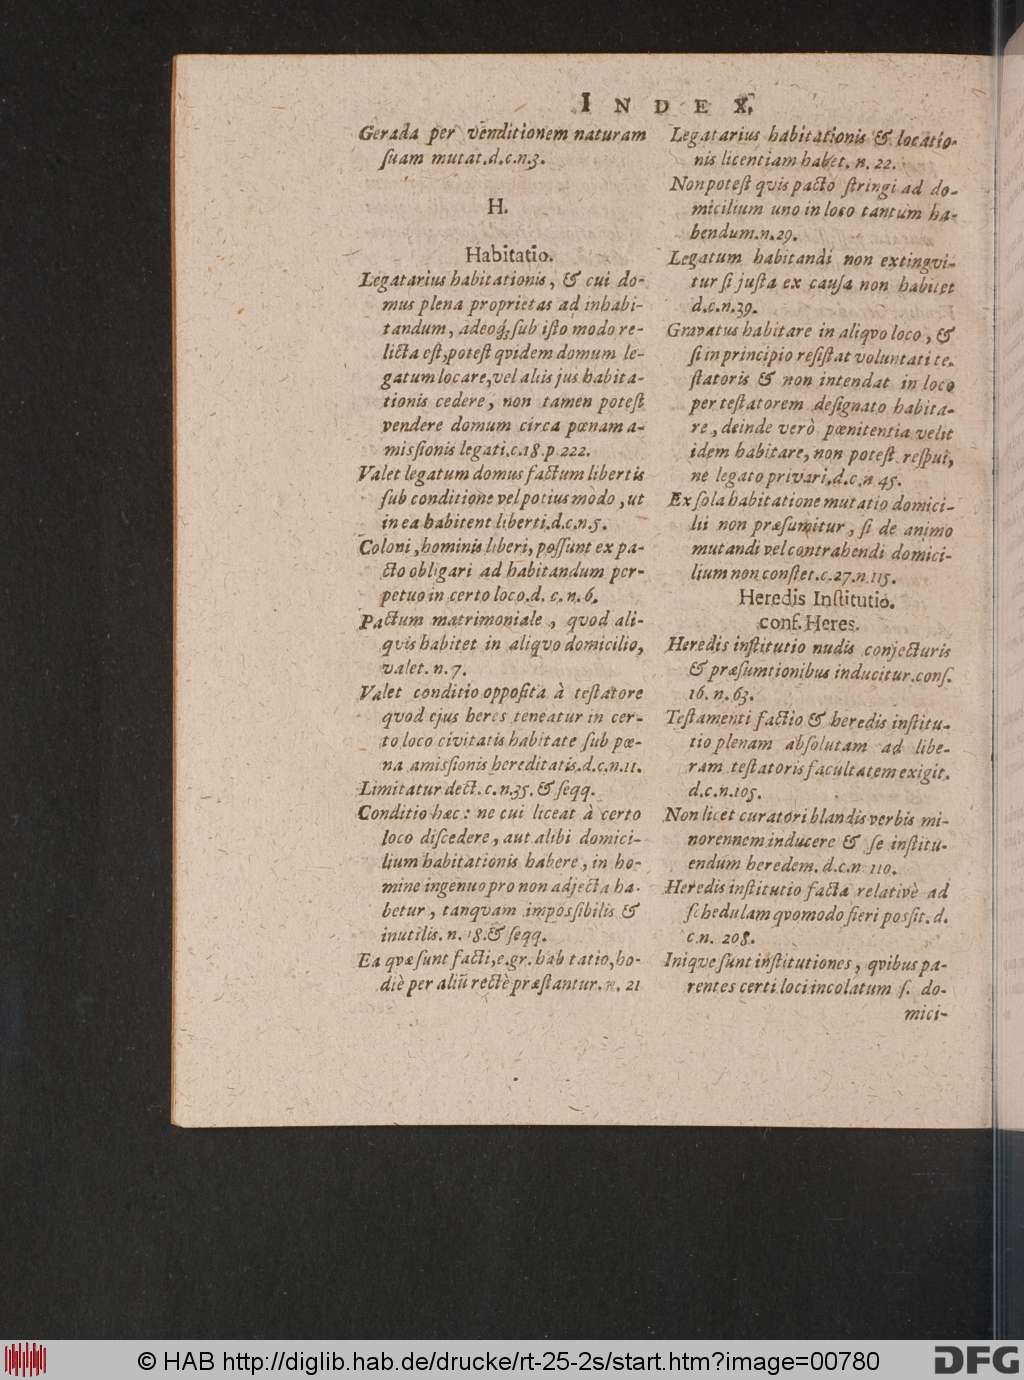 INDEX.
Gerada per venditionem naturam
ſuam mutat.d.c.n.3.
H.
Habitatio.
Legatarius habitationis, & cui do-
mus plena proprietas ad inhabi-
tandum, adeoq́;ſub iſto modo re-
licta eſt,poteſt qvidem domum le-
gatum locare,vel aliis jus habita-
tionis cedere, non tamen poteſt
vendere domum circa pœnam a-
miſſionis legati.c.18.p 222.
Valet legatum domus factum libertis
ſub conditione vel potius modo,ut
in ea habitent liberti.d.c.n.5.
Coloni,hominis liberi, poſſunt ex pa-
cto obligari ad habitandum per-
petuo in certo loco.d. c.n.6.
Pactum matrimoniale, qvod ali-
qvis habitet in aliqvo domicilio,
valet.n.7.
Valet conditio oppoſita à teſtatore
qvod ejus heres teneatur in cer-
to loco civitatis habitate ſub pœ-
na amiſſionis hereditatis.d.c.n.11.
Limitatur dect. c.n.35. & ſeqq.
Conditio hæc: ne cui liceat à certo
loco diſcedere, aut alibi domici-
lium habitationis habere, in ho-
mine ingenuo pro non adjecta ha-
betur, tanqvam impoſſibilis &
inutilis. n. 18.& ſeqq.
Ea qvæ ſunt facti,e.gr. hab tatio,ho-
diè per aliū rectè præſtantur. n. 21
Legatarius habitationis & locatio-
nis licentiam habet. n. 22.
Non poteſt qvis pacto ſtringi ad do-
micilium uno in loco tantum ha-
bendum.n.29.
Legatum habitandi non extingvi-
tur ſi juſta ex cauſa non habitet
d.c.n.39.
Gravatus habitare in aliqvo loco, &
ſi in principio reſiſtat voluntati te-
ſtatoris & non intendat in loco
per teſtatorem deſignato habita-
re, deinde verò pœnitentia velit
idem habitare, non poteſt reſpui,
ne legato privari.d.c.n 45.
Ex ſola habitatione mutatio domici-
lii non præſumitur, ſi de animo
mutandi vel contrahendi domici-
lium non conſtet.c.27.n.115.
Heredis Inſtitutio.
conf. Heres.
Heredis inſtitutio nudis conjecturis
& præſumtionibus inducitur.conſ.
16. n. 63.
Teſtamenti factio & heredis inſtitu-
tio plenam abſolutam ad libe-
ram teſtatoris facultatem exigit.
d.c.n.105.
Non licet curatori blandis verbis mi-
norennem inducere & ſe inſtitu-
endum heredem. d.c.n 110.
Heredis inſtitutio facta relativè ad
ſchedulam qvomodo fieri poſſit. d.
c.n. 208.
Iniqve ſunt inſtitutiones, qvibus pa-
rentes certi loci incolatum ſ. do-
mici-
© HAB http://diglib.hab.de/drucke/rt-25-2s/start.htm?image=00780
DFG